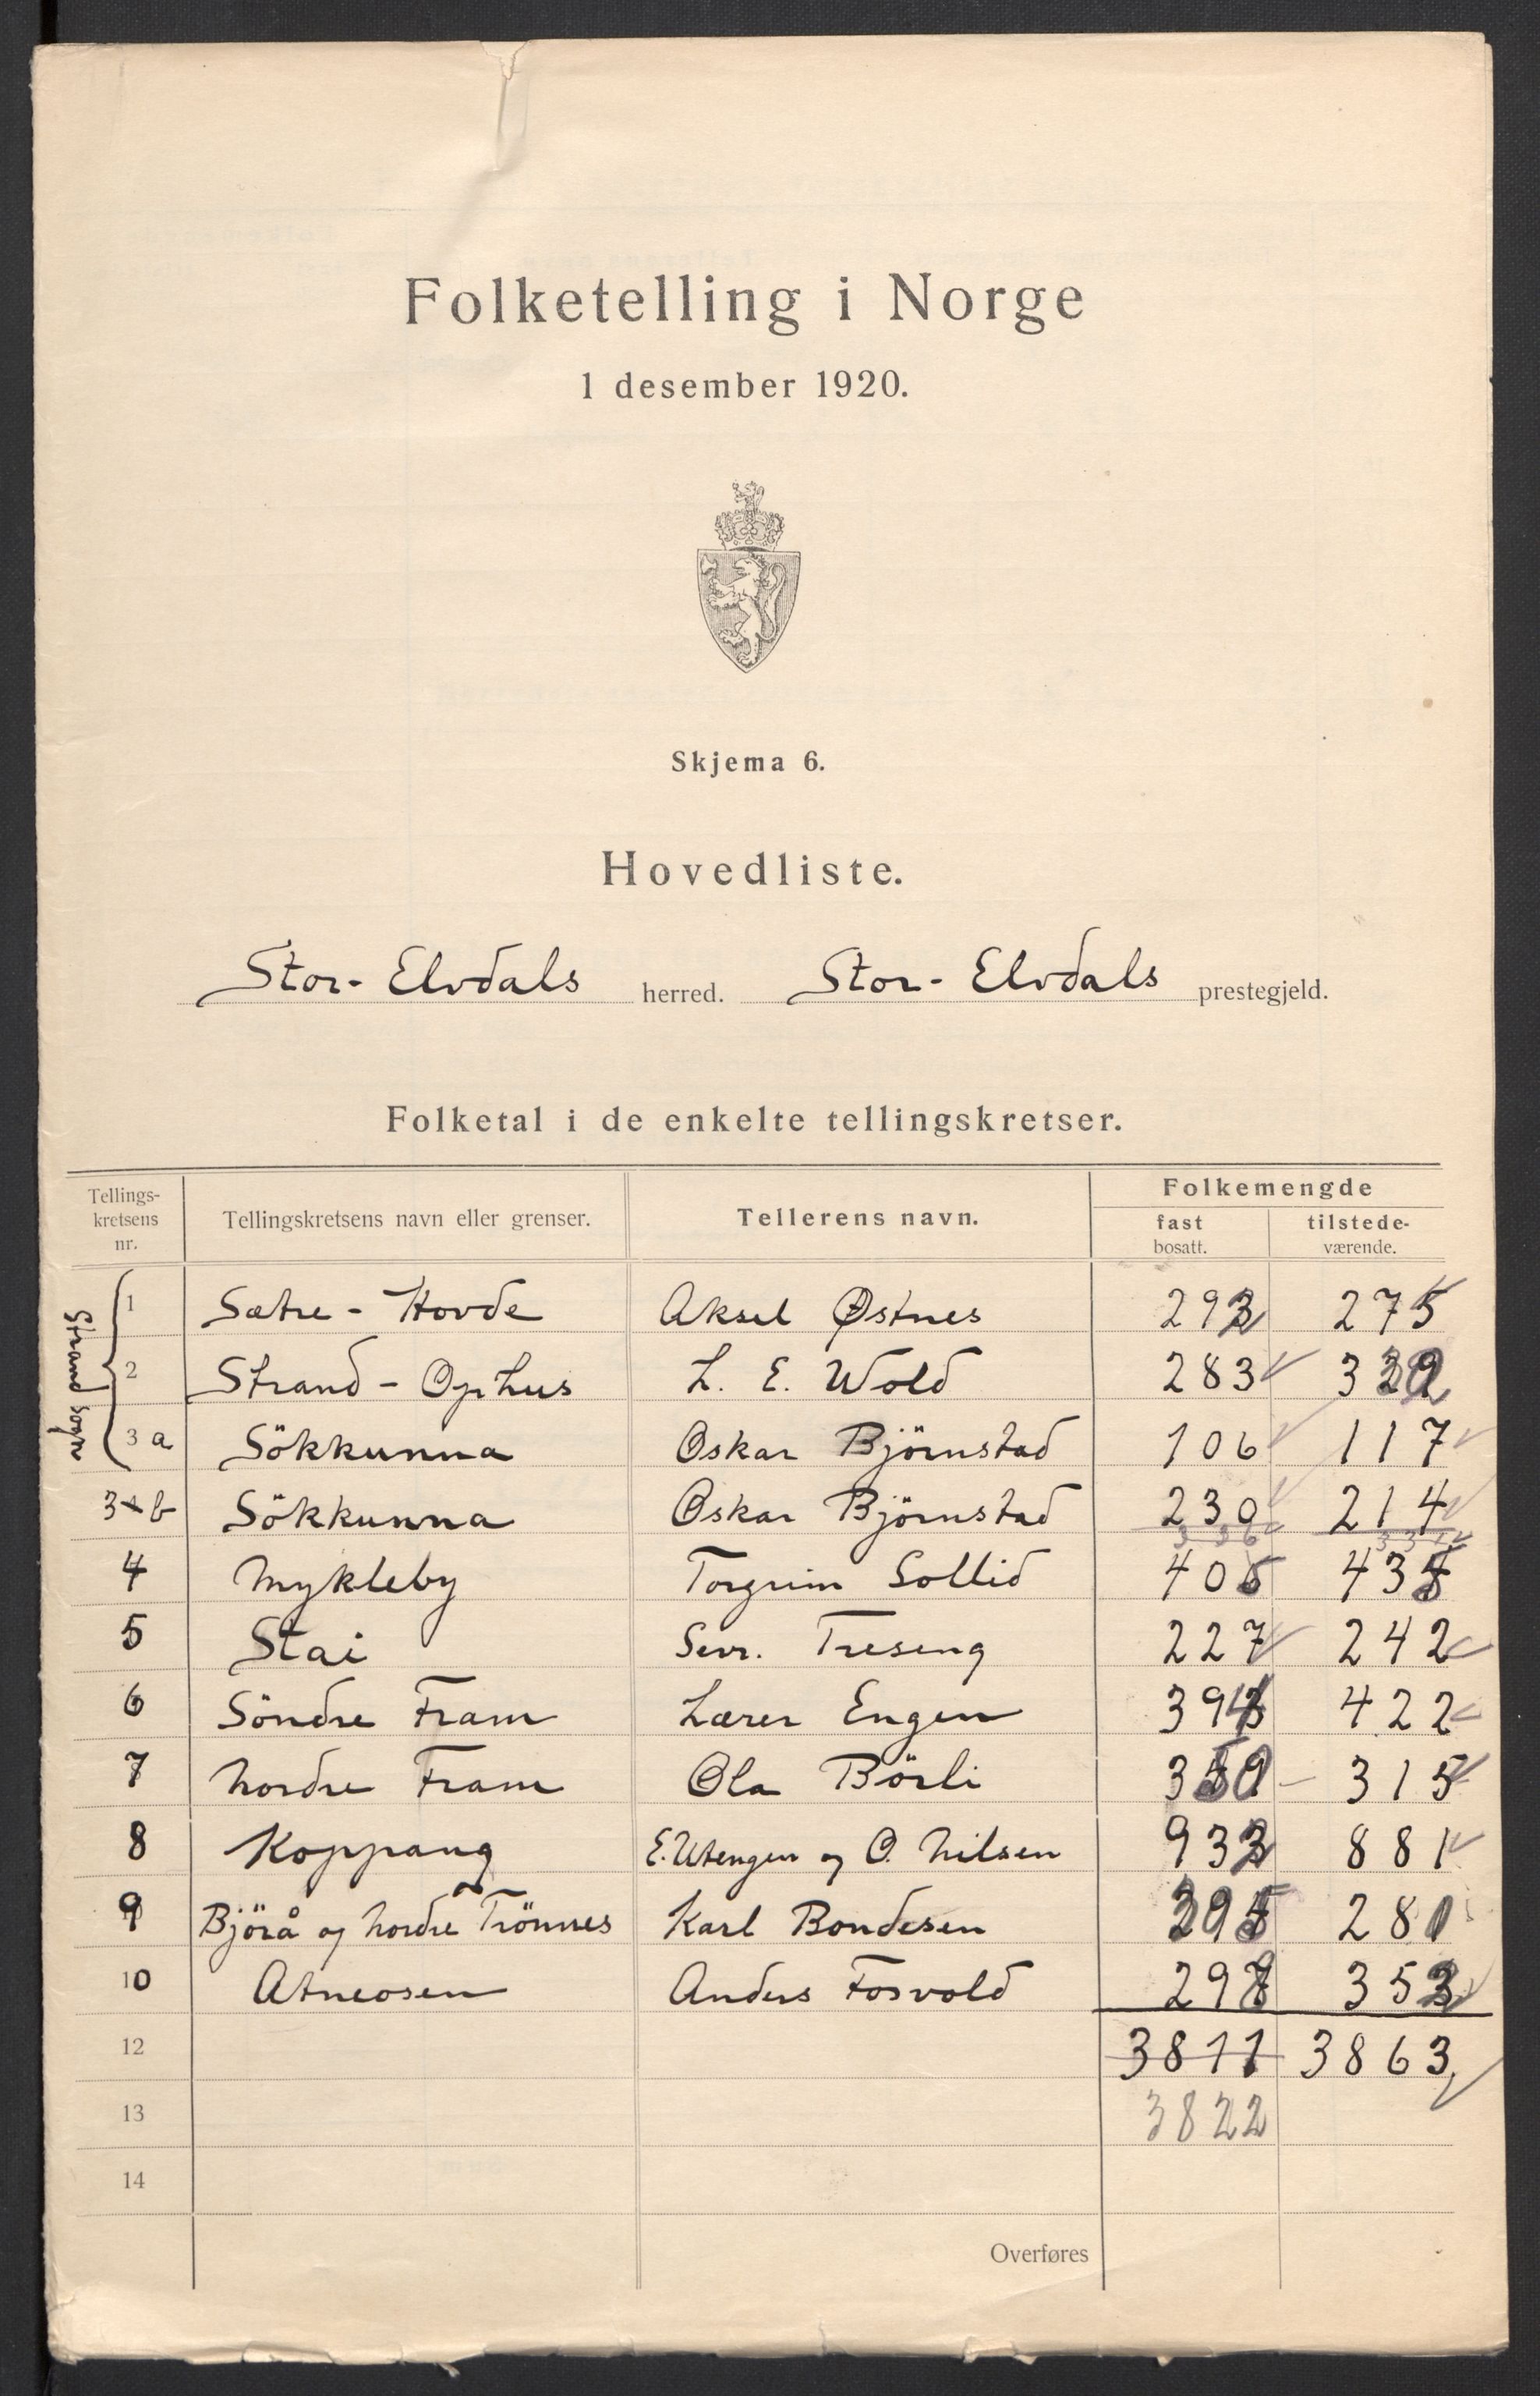 Folketelling i Norge
1 desember 1920.
Skjema 6.
Hovedliste.
Stor-Elvdals herred. Stor-Elvdals prestegjeld.
Folketal i de enkelte tellingskretser.
Tellings-kretsens nr. Tellingskretsens navn eller grenser. Tellerens navn. Folkemengde fast bosatt. tilstede-værende.
Strand sogn
1 Sætre - Hovde Aksel Østnes 275
2 Strand - Ophus L. E. Wold 283
3 a Sökkunna Oskar Björnstad 106 117
3 b Sökkunna Oskar Björnstad 230 214
336 331
4 Mykleby Torgrim Sollid
5 Stai Sevr. Treseng 227 242
6 Söndre Fram Lærer Engen 422
7 Nordre Fram Ola Börli 315
8 Koppang E. Utengen og O. Nilsen 881
9 Björå og Nordre Trönnes Karl Bondesen 281
10 Atneosen Anders Fosvold
12 3811 3863
13 3822
14
Overføres